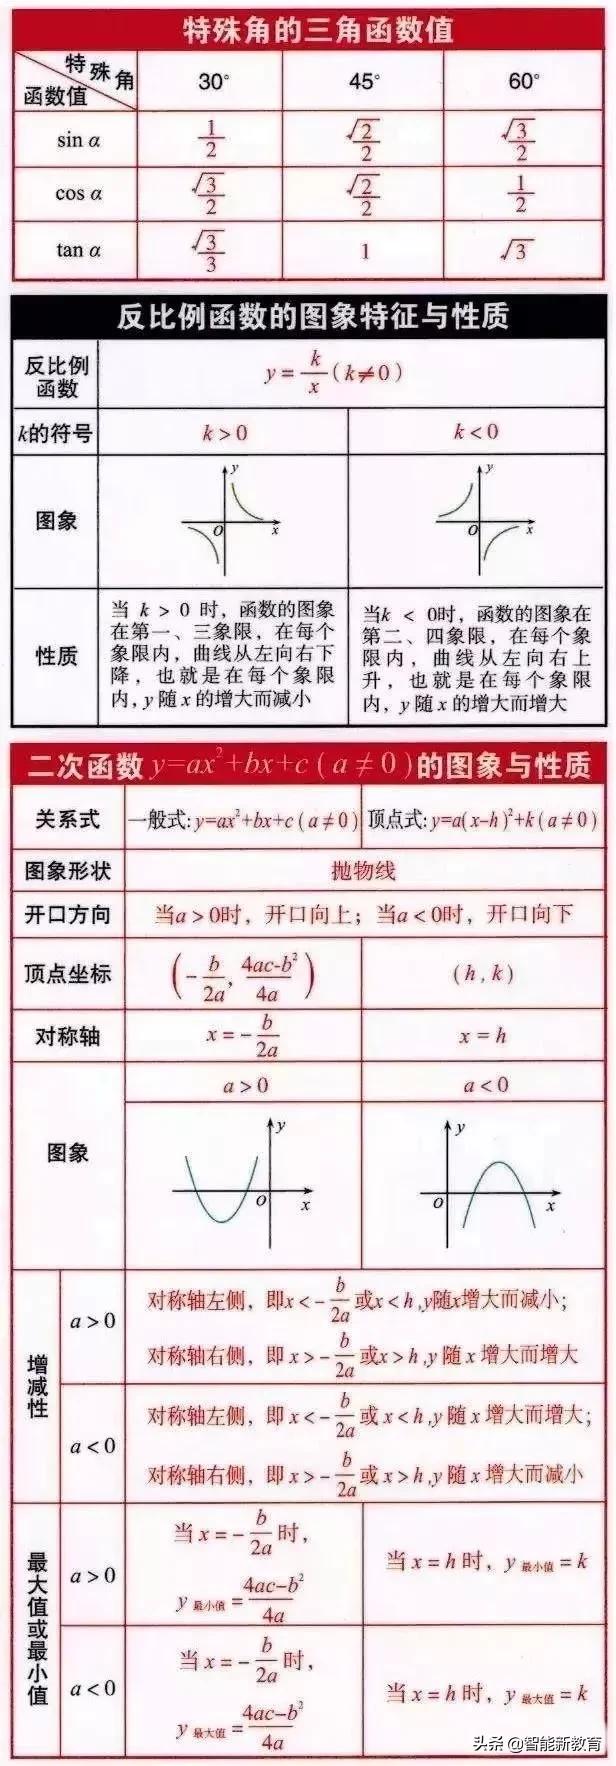 特殊角的三角函数值
特殊角 30° 45° 60°
函数值
sin α 1/2 √2/2 √3/2
cos α √3/2 √2/2 1/2
tan α √3/3 1 √3
反比例函数的图象特征与性质
反比例函数 y = k/x (k≠0)
k的符号 k > 0 k < 0
图象 y O x y O x
性质
当 k > 0 时，函数的图象
在第一、三象限，在每个
象限内，曲线从左向右下
降，也就是在每个象限
内，y 随 x 的增大而减小
当k < 0时，函数的图象在
第二、四象限，在每个象
限内，曲线从左向右上
升，也就是在每个象限
内，y 随 x 的增大而增大
二次函数 y=ax²+bx+c (a≠0)的图象与性质
关系式 一般式:y=ax²+bx+c (a≠0) 顶点式:y=a(x-h)²+k(a≠0)
图象形状 抛物线
开口方向 当a>0时，开口向上；当a<0时，开口向下
顶点坐标 (-b/2a, 4ac-b²/4a) (h,k)
对称轴 x=-b/2a x=h
图象 a>0 a<0
y O x y O x
增减性
a>0
对称轴左侧，即x<-b/2a或x<h,y随x增大而减小；
对称轴右侧，即x>-b/2a或x>h,y随x增大而增大
a<0
对称轴左侧，即x<-b/2a或x<h,y随x增大而增大；
对称轴右侧，即x>-b/2a或x>h,y随x增大而减小
最大值或最小值
a>0
当x=-b/2a时，
y最小值=4ac-b²/4a
当x=h时，y最小值=k
a<0
当x=-b/2a时，
y最大值=4ac-b²/4a
当x=h时，y最大值=k
头条 @智能新教育